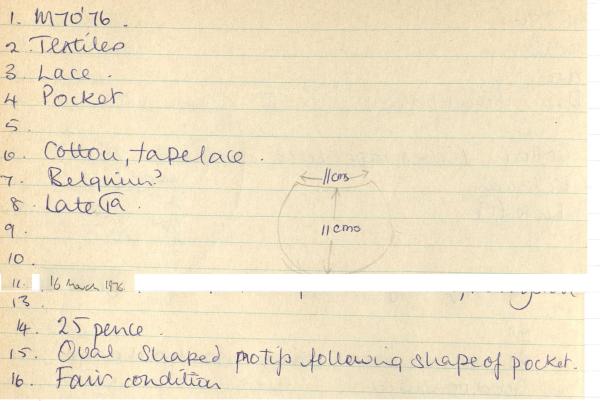 1. M70'76.
2 Textiles
3 Lace.
4 Pocket
5.
6. Cotton, tape lace.
7. Belgium?
8. Late
11 cms
9.
11 cms
10.
11. 16 March 1976
13.
14. 25 pence.
15. Oval shaped motifs following shape of pocket.
16. Fair condition